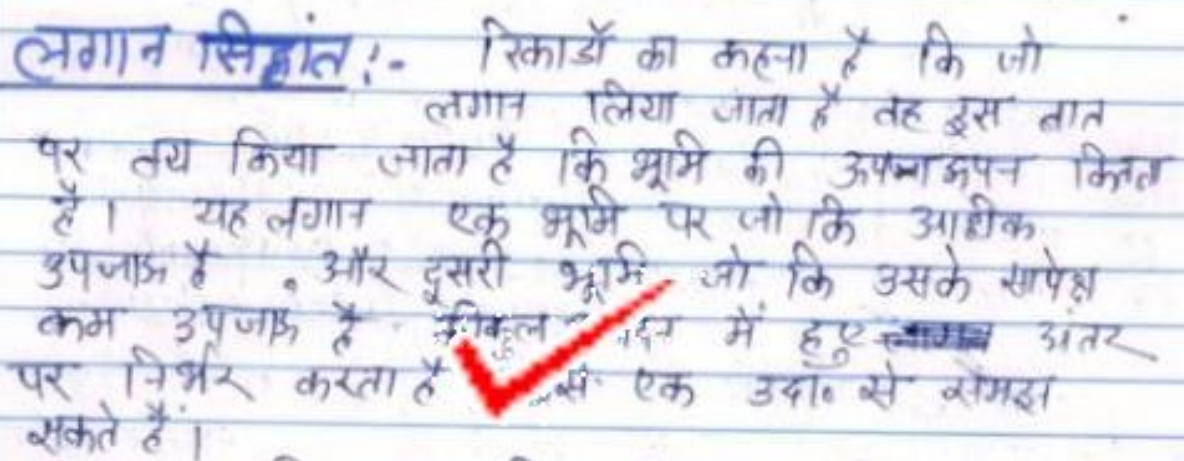 लगान सिद्धांत :- रिकार्डो का कहना है कि जो
लगान लिया जाता है वह इस बात
पर तय किया जाता है कि भूमि की उपजाऊपन कितना
है। यह लगान एक भूमि पर जो कि अधिक
उपजाऊ है , और दूसरी भूमि जो कि उसके सापेक्ष
कम उपजाऊ है में हुए अंतर
पर निर्भर करता है एक उदा० से समझ
सकते हैं।